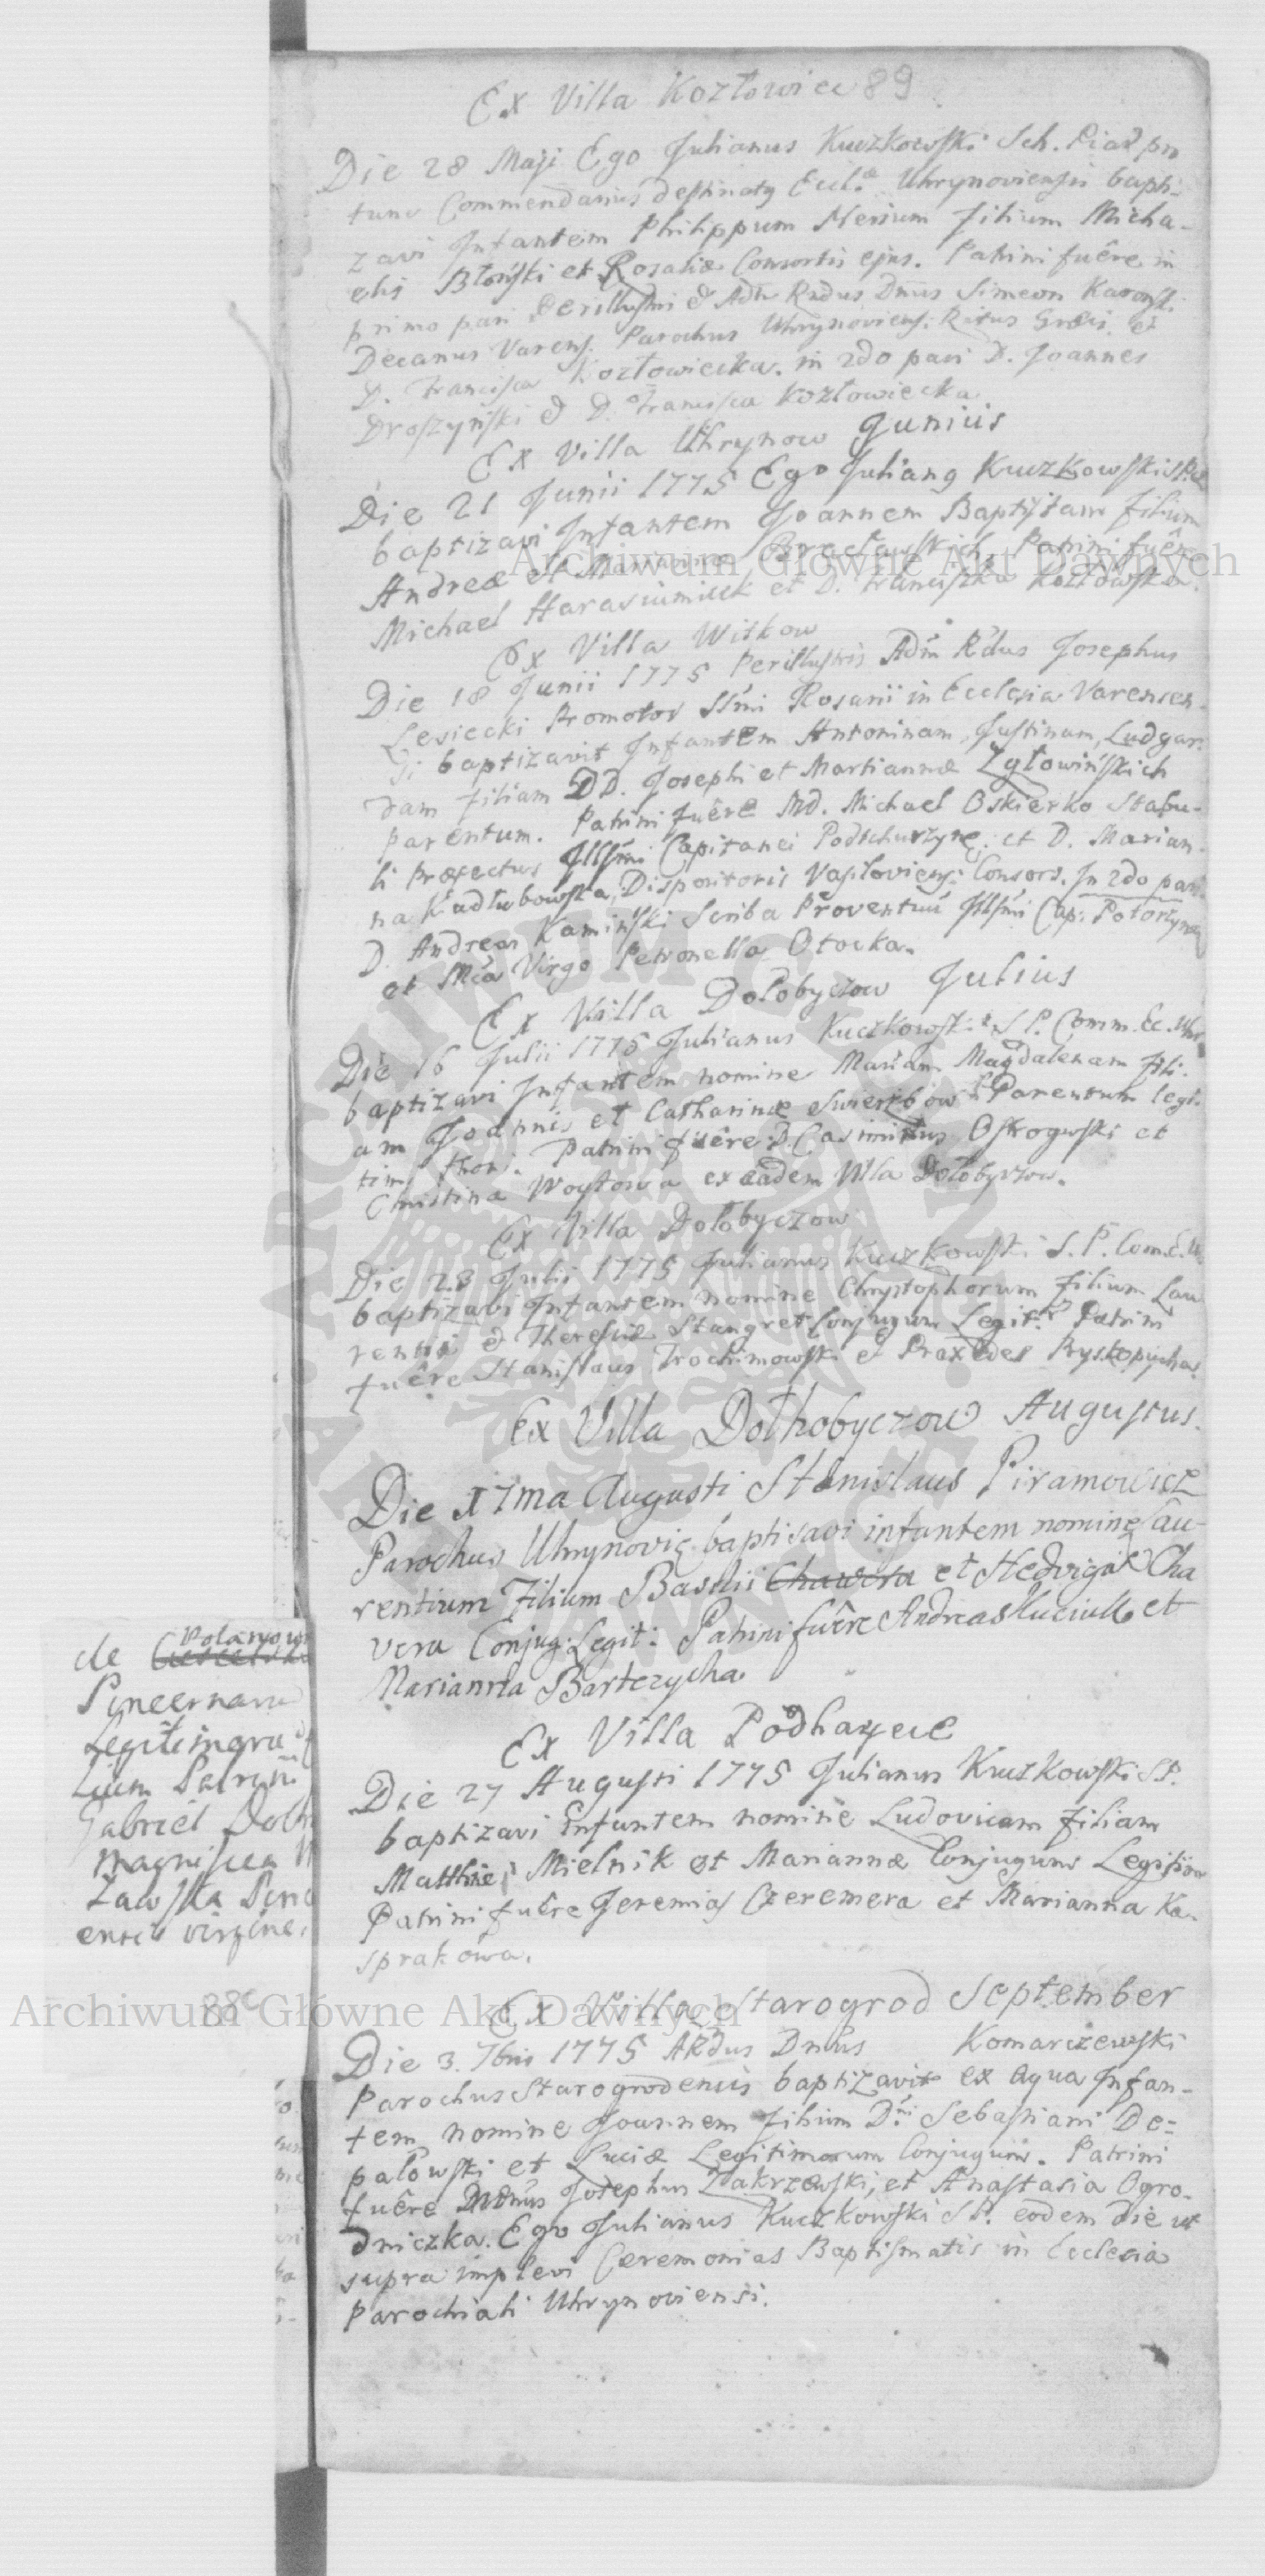 Ex Villa Kozłowiec 89
Die 28 Maji Ego Julianus Kuczkowski Sch. Piar pro
tunc Commendarius destinatq Eccl.æ Uhrynoviensis bapti-
zavi Infantem Philippum Nerium filium Micha-
elis Błoński et Rosaliæ Consortis ejus. Patrini fuêre in
primo pari Perillustri & Adm Rndus Dnus Simeon
Decanus Varens. Parochus Uhrynoviens: Ritus Græci et
D. Francisca Kozłowiecka. in 2do pari D. Joannes
Droszyński & D. Francisca Kozłowiecka
Ex Villa Uhrynow Junius
Die 21 Junii 1775 Ego Julianq Kuczkowski
baptizavi Infantem Joannem Baptistam filium
Andreæ et Mariannæ Bracławskich Patrini fuêre
Michael Harasiumiuk et D. Franciszka Kozłowska
Ex Villa Witkow
Die 18 Junii 1775 Perillustris Adm Rdus Josephus
Lesiecki Promotor SSmi Rosarii in Ecclesia Varensen-
si baptizavit Infantem Antoninam, Justinam, Ludgar-
dam filiam DD. Josephi et Martiannæ Zgłowińskich
parentum. Patrini fuêre MD. Michael Oskierko Stabu-
li Præfectus Illsmi Capitanei et D. Marian-
na Kadłubowska, Dispositoris Consors. In 2do pari
D. Andreas Kamiński Scriba Proventuû Illsmi Cap:
et Mca Virgo Petronella Otocka.
Ex Villa Dołobyczow Julius
Die 16 Julii 1775 Julianus Kuczkowski S P. Comm. Ec. Uhr
baptizavi Infantem nomine Mariam Magdalenam fili-
am Joannis et Catharinæ Parentum legi-
tim thori. Patrini fuêre D. Casimirus Ostrogwski et
Christina Woytowa ex eadem Villa Dołobyczow.
Ex Villa Dołobyczow
Die 23 Julii 1775 Julianus Kuczkowski S. P. Com.E.U.
baptizavi Infantem nomine Chrystophorum filium Lau
rentii & Theresiæ Stangret Conjugum Legit. Patrini
fuêre Stanislaus Trochimowski & Praxedes
Ex Villa Dołhobyczow Augustus.
Die 17ma Augusti Stanislaus Piramowicz
Parochus Uhrynovię baptisavi infantem nomine Lau-
rentium Filium Basilii Chawera et Hedvigæ Cha
vera Conjug: Legit: Patrini fuêre Andreas Kuciuk et
Marianna Bartczycha
Ex Villa Podhayce
Die 27 Augusti 1775 Julianus Kuczkowski S P.
baptizavi Infantem nomine Ludovicam filiam
Matthiei Mielnik et Mariannæ Conjugum Legitim
Patrini fuêre Jeremias Czeremera et Marianna Ka-
sprakowa.
Ex Villa Starogrod September
Die 3. 7bris 1775 ARdus Dnus Komarczewski
Parochus Starogrodensis baptizavit ex aqua Infan-
tem nomine Joannem filium D.ni Sebastiani De=
pałowski et Luciæ Legitimorum Conjugum. Patrini
fuêre Josephus Zakrzewski, et Anastasia Ogro-
dniczka. Ego Julianus Kuczkowski S P. eodem die ut
supra implevi Ceremonias Baptismatis in Ecclesia
Parochiali Uhrynoviensi.
de
Pincernaru
Legitimoru
Patrini
Gabriel
magnifica
zawska
virgine
Archiwum Główne Akt Dawnych
Archiwum Główne Akt Dawnych